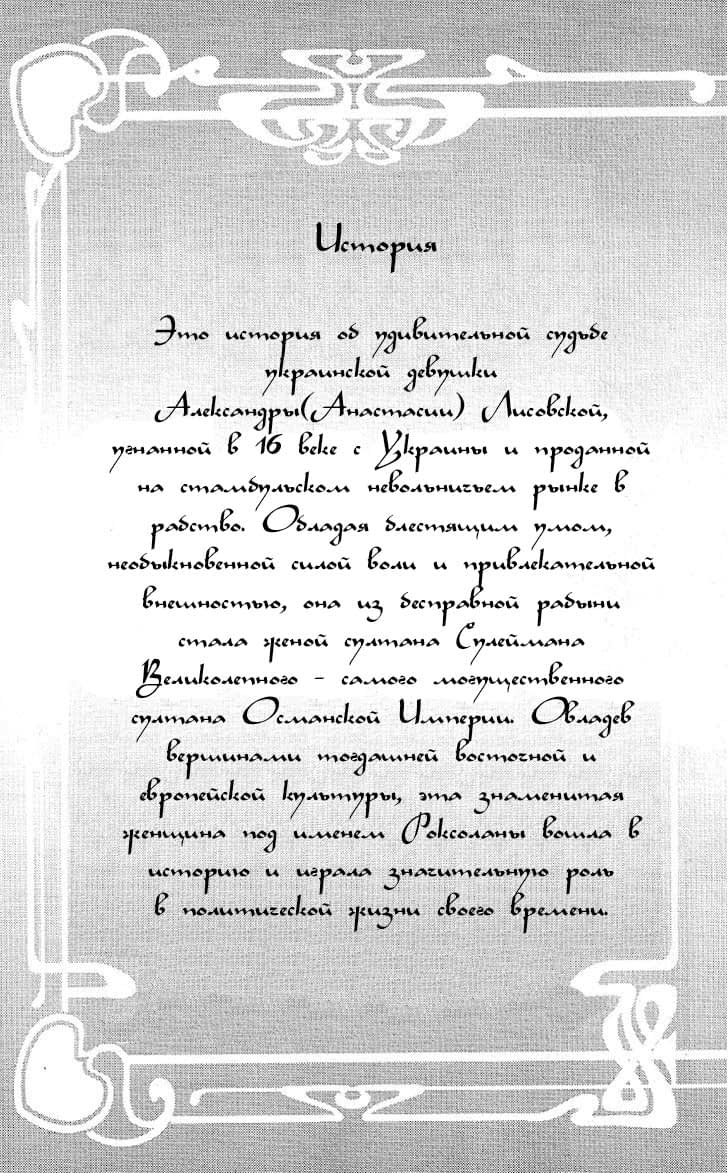 История
Это история об удивительной судьбе
украинской девушки
Александры(Анастасии) Лисовской,
угнанной в 16 веке с Украины и проданной
на стамбульском невольничьем рынке в
рабство. Обладая блестящим умом,
необыкновенной силой воли и привлекательной
внешностью, она из бесправной рабыни
стала женой султана Сулеймана
Великолепного - самого могущественного
султана Османской Империи. Овладев
вершинами тогдашней восточной и
европейской культуры, эта знаменитая
женщина под именем Роксоланы вошла в
историю и играла значительную роль
в политической жизни своего времени.